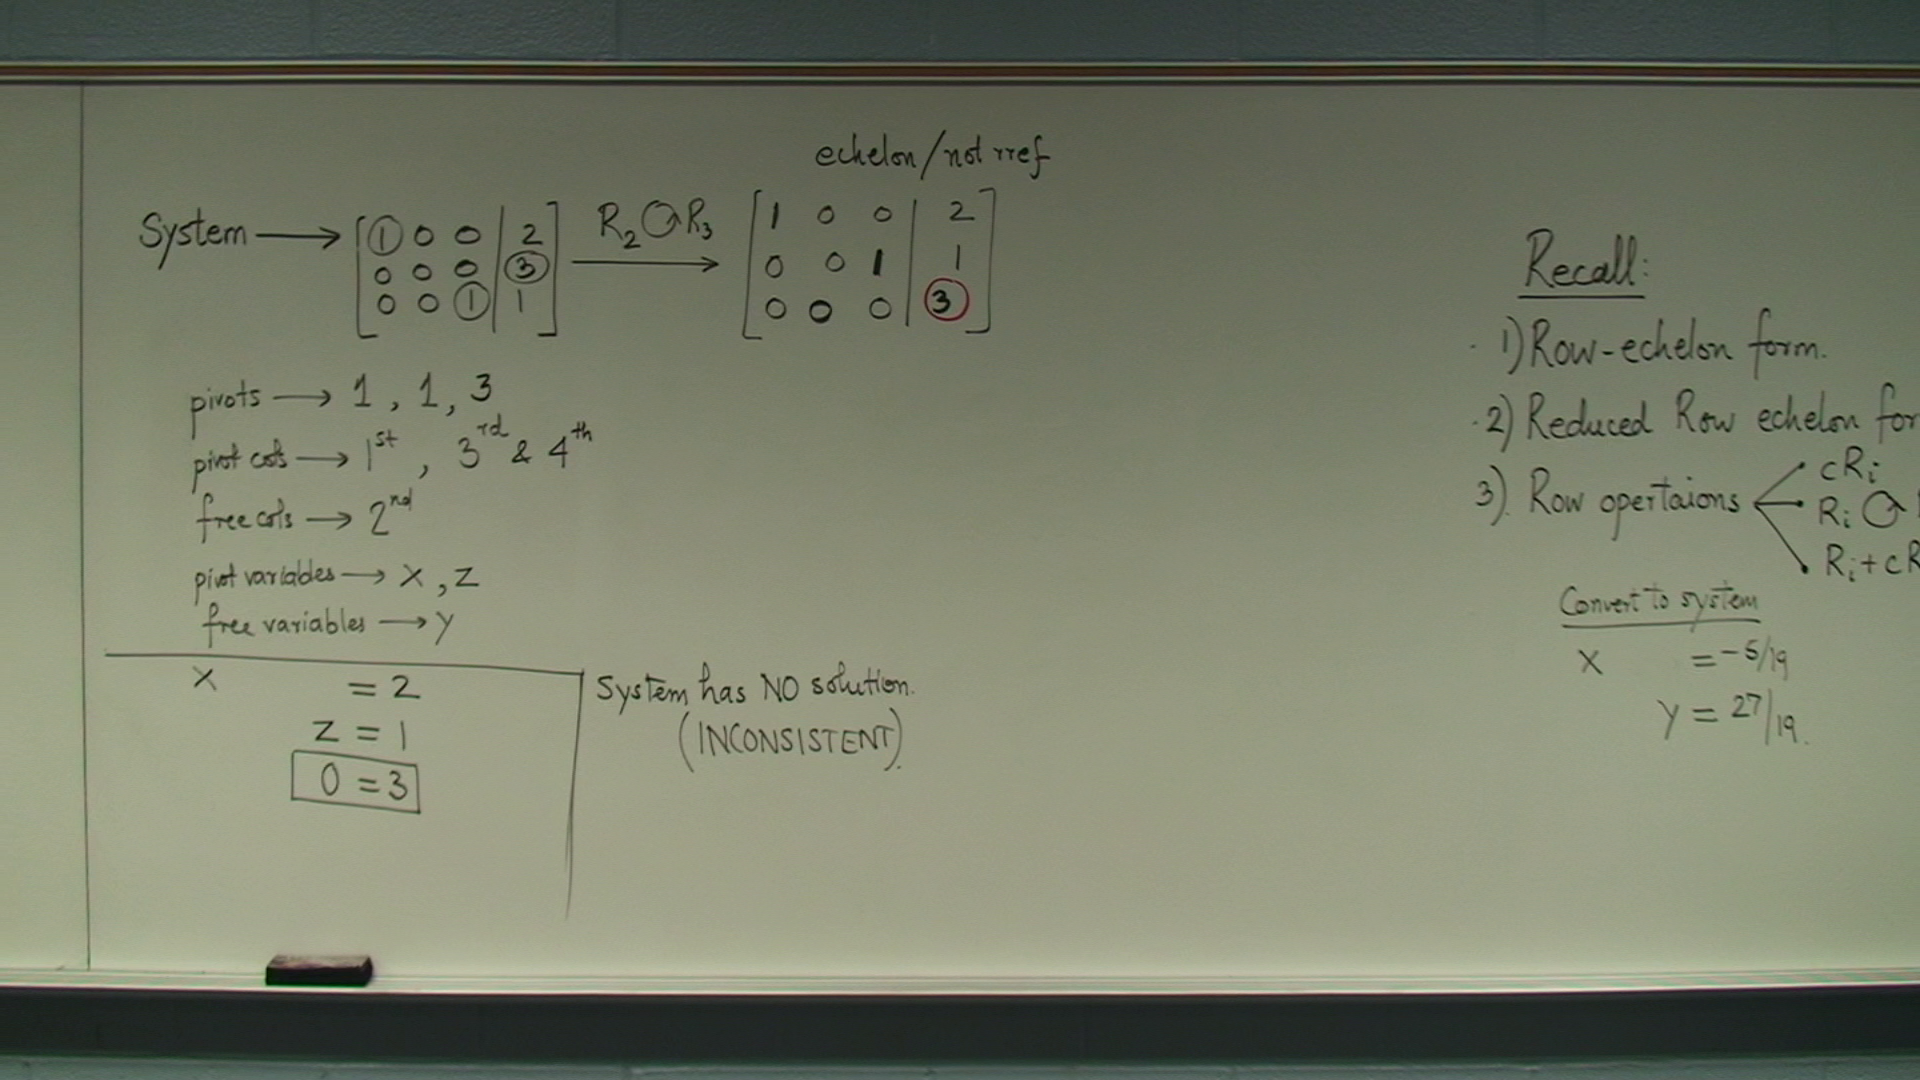 echelon/not rref
System → [① 0 0 | 2] R₂ ↻ R₃ → [1 0 0 | 2]
[0 0 0 | ③] [0 0 1 | 1]
[0 0 ① | 1] [0 0 0 | ③]
pivots → 1, 1, 3
pivot cols → 1st, 3rd & 4th
free cols → 2nd
pivot variables → x, z
free variables → y
x = 2
z = 1
0 = 3
System has NO solution.
(INCONSISTENT).
Recall:
1) Row-echelon form.
2) Reduced Row echelon for
3). Row opertaions
cRᵢ
Rᵢ ↻
Rᵢ + cR
Convert to system
x = -5/19
y = 27/19.